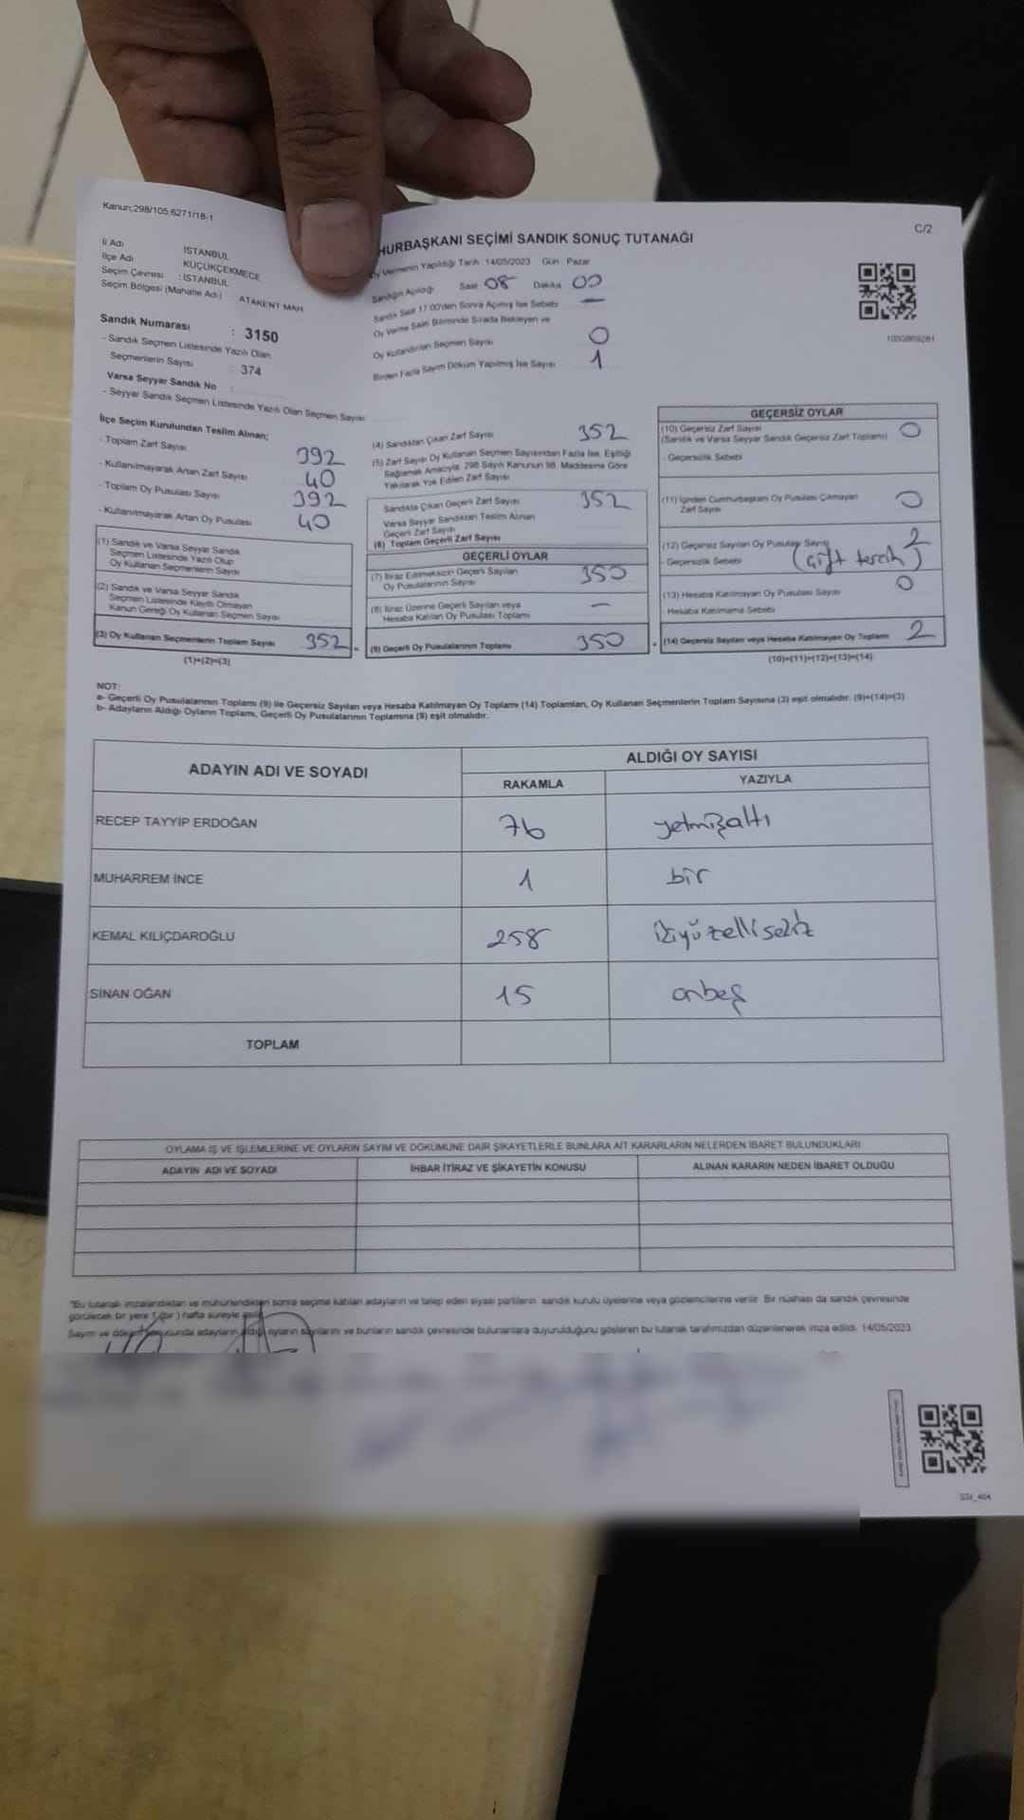 Kanun:298/105,6271/18-1
C/2
HURBAŞKANI SEÇİMİ SANDIK SONUÇ TUTANAĞI
Oy Vermenin Yapıldığı Tarih: 14/05/2023 Gün: Pazar
İl Adı : İSTANBUL
İlçe Adı : KÜÇÜKÇEKMECE
Seçim Çevresi : İSTANBUL
Seçim Bölgesi (Mahalle Adı) : ATAKENT MAH
Sandık Numarası : 3150
- Sandık Seçmen Listesinde Yazılı Olan
Seçmenlerin Sayısı : 374
Varsa Seyyar Sandık No :
- Seyyar Sandık Seçmen Listesinde Yazılı Olan Seçmen Sayısı
Sandığın Açıldığı Saat 08 Dakika 00
Sandık Saat 17:00'den Sonra Açılmış İse Sebebi —
Oy Verme Saati Bitiminde Sırada Bekleyen ve
Oy Kullandırılan Seçmen Sayısı 0
Birden Fazla Sayım Döküm Yapılmış İse Sayısı 1
İlçe Seçim Kurulundan Teslim Alınan;
- Toplam Zarf Sayısı 392
- Kullanılmayarak Artan Zarf Sayısı 40
- Toplam Oy Pusulası Sayısı 392
- Kullanılmayarak Artan Oy Pusulası 40
(1) Sandık ve Varsa Seyyar Sandık
Seçmen Listesinde Yazılı Olup
Oy Kullanan Seçmenlerin Sayısı
(2) Sandık ve Varsa Seyyar Sandık
Seçmen Listesinde Kayıtlı Olmayan
Kanun Gereği Oy Kullanan Seçmen Sayısı
(3) Oy Kullanan Seçmenlerin Toplam Sayısı 352
(1)+(2)=(3)
(4) Sandıktan Çıkan Zarf Sayısı 352
(5) Zarf Sayısı Oy Kullanan Seçmen Sayısından Fazla İse, Eşitliği
Sağlamak Amacıyla 298 Sayılı Kanunun 98. Maddesine Göre
Yakılarak Yok Edilen Zarf Sayısı
Sandıkta Çıkan Geçerli Zarf Sayısı 352
Varsa Seyyar Sandıktan Teslim Alınan
Geçerli Zarf Sayısı
(6) Toplam Geçerli Zarf Sayısı
GEÇERLİ OYLAR
(7) İtiraz Edilmeksizin Geçerli Sayılan
Oy Pusulalarının Sayısı 350
(8) İtiraz Üzerine Geçerli Sayılan veya
Hesaba Katılan Oy Pusulası Toplamı —
(9) Geçerli Oy Pusulalarının Toplamı 350
GEÇERSİZ OYLAR
(10) Geçersiz Zarf Sayısı 0
(Sandık ve Varsa Seyyar Sandık Geçersiz Zarf Toplamı)
- Geçersizlik Sebebi
(11) İçinden Cumhurbaşkanı Oy Pusulası Çıkmayan
Zarf Sayısı 0
(12) Geçersiz Sayılan Oy Pusulası Sayısı 2
- Geçersizlik Sebebi (Çift tercih)
(13) Hesaba Katılmayan Oy Pusulası Sayısı 0
Hesaba Katılmama Sebebi
(14) Geçersiz Sayılan veya Hesaba Katılmayan Oy Toplamı 2
(10)+(11)+(12)+(13)=(14)
NOT:
a- Geçerli Oy Pusulalarının Toplamı (9) ile Geçersiz Sayılan veya Hesaba Katılmayan Oy Toplamı (14) Toplamları, Oy Kullanan Seçmenlerin Toplam Sayısına (3) eşit olmalıdır. (9)+(14)=(3)
b- Adayların Aldığı Oyların Toplamı, Geçerli Oy Pusulalarının Toplamına (9) eşit olmalıdır.
ADAYIN ADI VE SOYADI
ALDIĞI OY SAYISI
RAKAMLA YAZIYLA
RECEP TAYYİP ERDOĞAN 76 yetmişaltı
MUHARREM İNCE 1 bir
KEMAL KILIÇDAROĞLU 258 ikiyüzellisekiz
SİNAN OĞAN 15 onbeş
TOPLAM
OYLAMA İŞ VE İŞLEMLERİNE VE OYLARIN SAYIM VE DÖKÜMÜNE DAİR ŞİKAYETLERLE BUNLARA AİT KARARLARIN NELERDEN İBARET BULUNDUKLARI
ADAYIN ADI VE SOYADI İHBAR İTİRAZ VE ŞİKAYETİN KONUSU ALINAN KARARIN NEDEN İBARET OLDUĞU
"Bu tutanak imzalandıktan ve mühürlendikten sonra seçime katılan adayların ve talep eden siyasi partilerin sandık kurulu üyelerine veya gözlemcilerine verilir. Bir nüshası da sandık çevresinde
görülecek bir yere 1 (bir) hafta süreyle
Sayım ve adayların aldığı oyların sayılarını ve bunların sandık çevresinde bulunanlara duyurulduğunu gösteren bu tutanak tarafımızdan düzenlenerek imza edildi. 14/05/2023